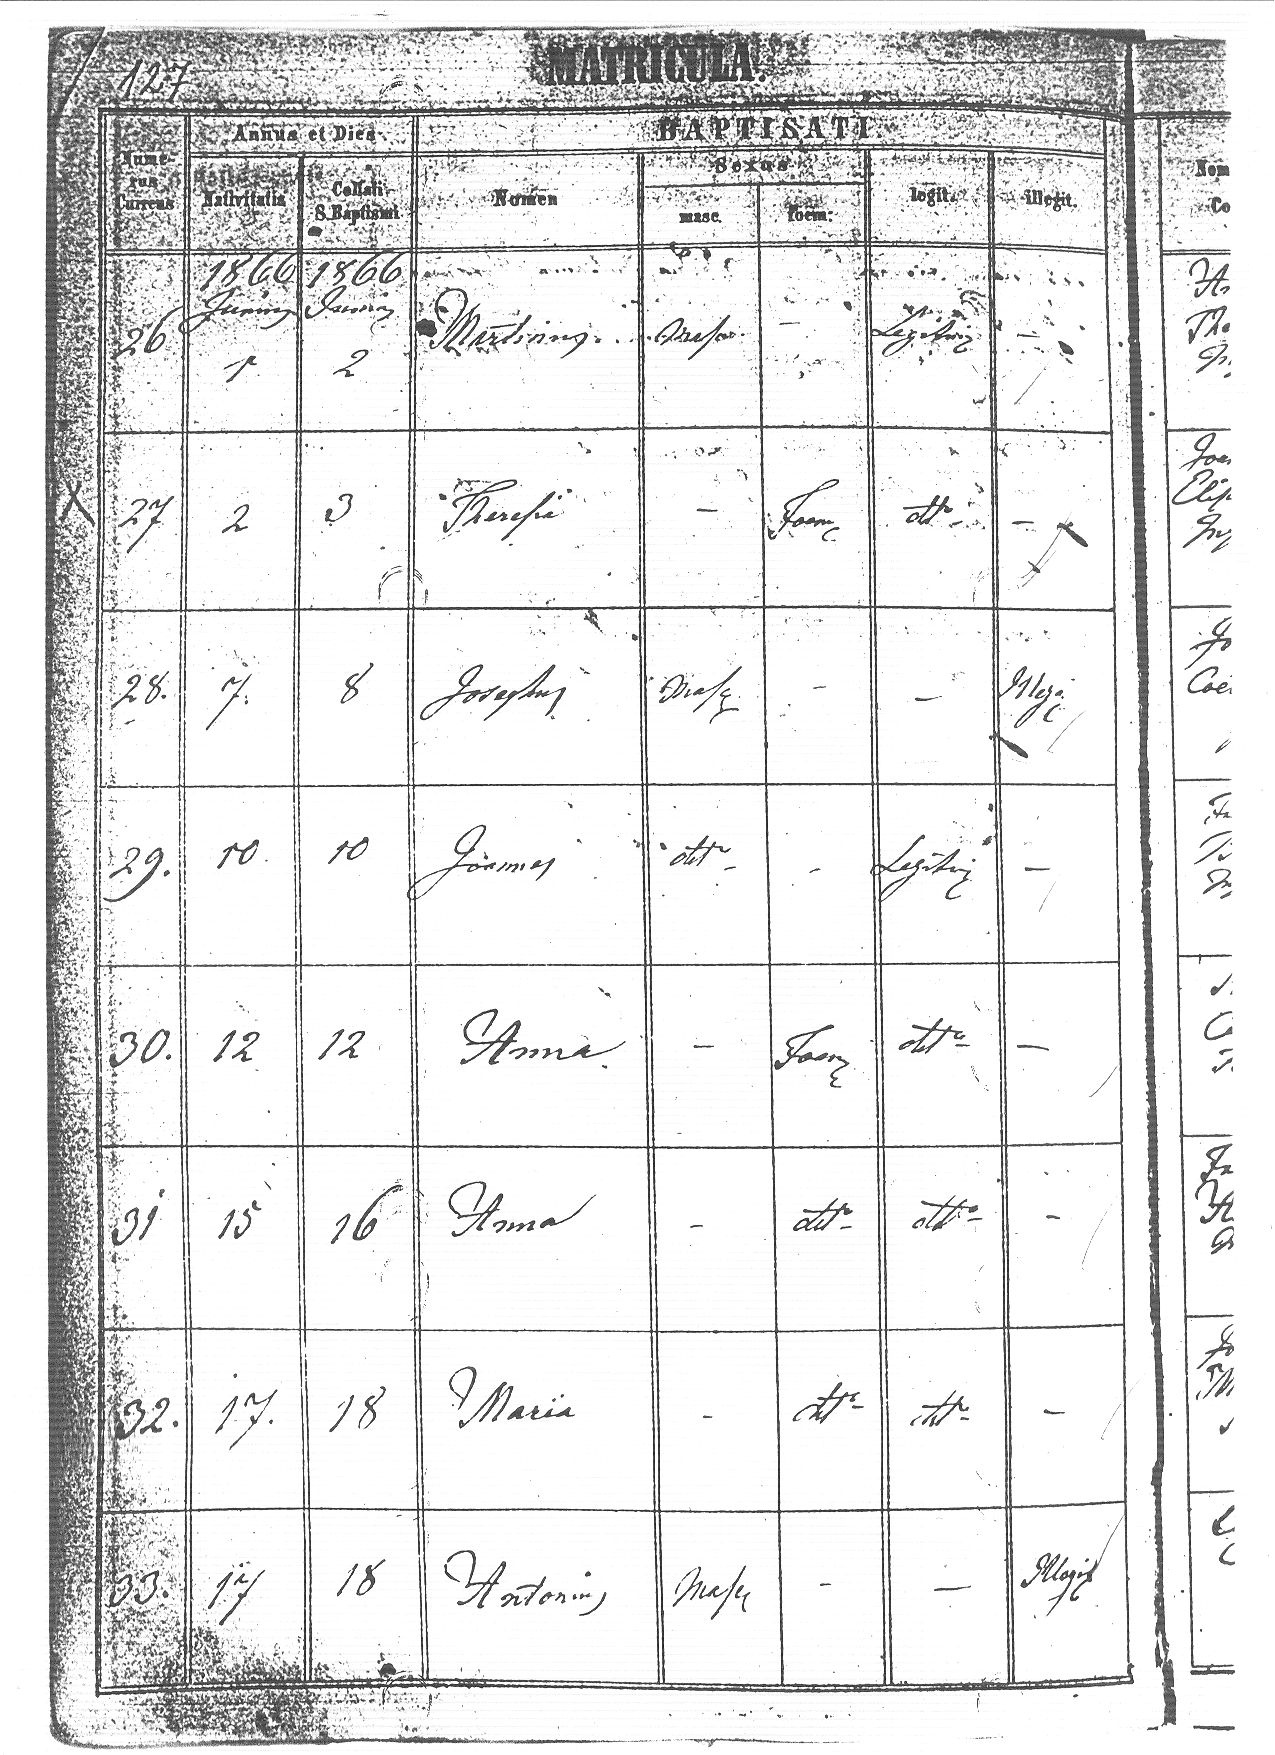 127
MATRICULA.
Nume-
rus
Currens
Annus et Dies
Nativitatis
Collati
S. Baptismi
BAPTISATI.
Nomen
Sexus
masc.
foem:
legit.
illegit.
Nom
Co
1866 1866
Junius Junii
26 1 2 Martinus. Masc. – Legitim –
27 2 3 Theresia – Foem ditto –
28. 7. 8 Josephus Masc – – Illegi
29. 10. 10 Joannes ditto – Legitim –
30. 12 12 Anna – Foem ditto –
31 15 16 Anna – ditto ditto –
32. 17. 18 Maria – ditto ditto –
33. 17 18 Antonius Masc – – Illegit